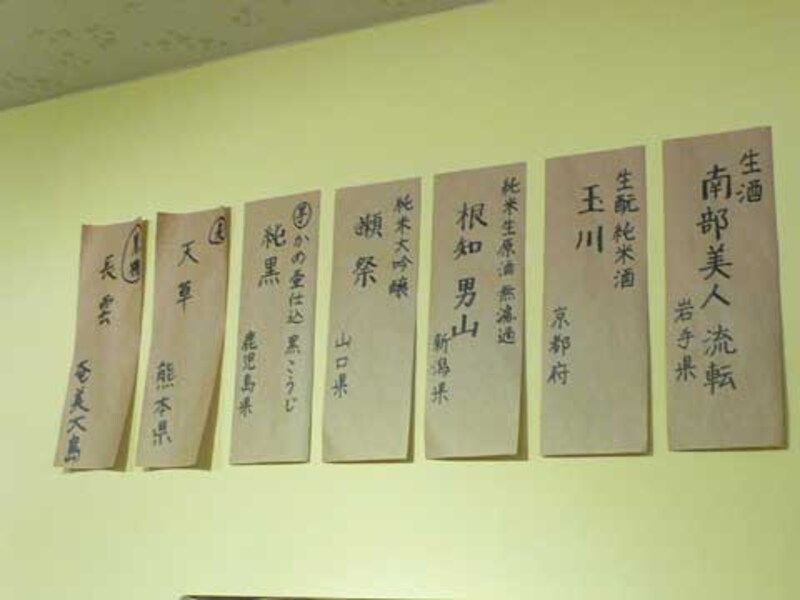 生酒
南部美人 流転
岩手県
生酛純米酒
玉川
京都府
純米生原酒 無濾過
根知 男山
新潟県
純米大吟醸
獺祭
山口県
芋 かめ壺仕込 黒こうじ
純黒
鹿児島県
天草
熊本県
黒糖
長雲
奄美大島